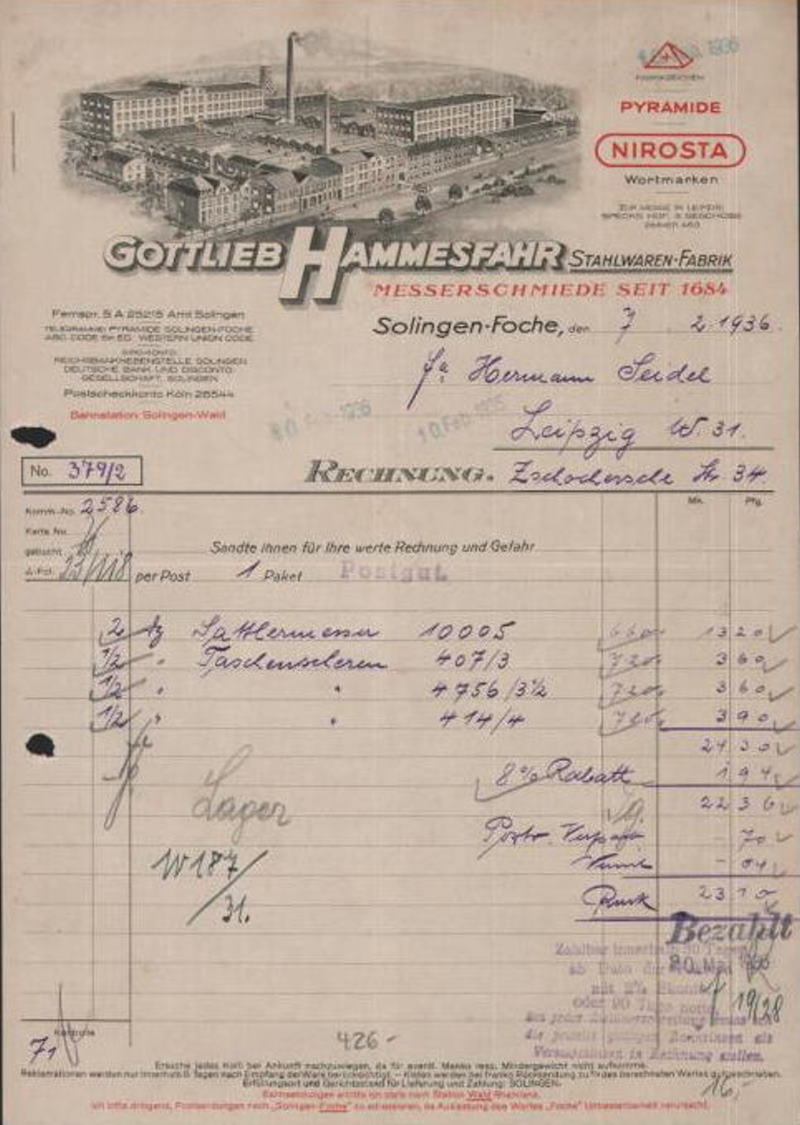 PYRAMIDE
NIROSTA
Wortmarken
GOTTLIEB HAMMESFAHR STAHLWAREN-FABRIK
MESSERSCHMIEDE SEIT 1684
Fernspr. S A 25215 Amt Solingen
TELEGRAMME: PYRAMIDE SOLINGEN-FOCHE
ABC CODE 5th ED. WESTERN UNION CODE
GIRO-KONTO:
REICHSBANKNEBENSTELLE SOLINGEN
DEUTSCHE BANK UND DISCONTO-
GESELLSCHAFT, SOLINGEN
Postscheckkonto Köln 26544
Bahnstation: Solingen-Wald
Solingen-Foche, den 7. 2. 1936.
Fa. Hermann Seidel
Leipzig W. 31.
10 Feb 1936
No. 379/2
RECHNUNG. Zschochersche Str. 34.
Mk. Pfg.
Komm.-No. 2586.
Karte No.
gebucht
Sandte Ihnen für Ihre werte Rechnung und Gefahr
per Post 1 Paket Postgut
2 Dz Sattlermesser 10005 660 13 20
1/2 " Taschenscheren 407/3 720 3 60
1/2 " " 4756/3½ 720 3 60
1/2 " " 414/4 780 3 90
24 30
8% Rabatt 1 94
22 36
Porto. Verpack. - 70
- 04
23 10
Lager
W187/
31.
Bezahlt
Zahlbar innerhalb 30 Tagen
ab Datum der
mit 2% Skonto
oder 90 Tage netto
19/28
Kontrolle
71
426-
Ersuche jedes Kolli bei Ankunft nachzuwiegen, da für eventl. Manko resp. Mindergewicht nicht aufkomme.
Reklamationen werden nur innerhalb 8 Tagen nach Empfang der Ware berücksichtigt. — Kisten werden bei franko Rücksendung zu ⅔ des berechneten Wertes gutgeschrieben.
Erfüllungsort und Gerichtsstand für Lieferung und Zahlung: SOLINGEN.
16,-
Bahnsendungen erbitte ich stets nach Station Wald Rheinland.
Ich bitte dringend, Postsendungen nach „Solingen-Foche" zu adressieren, da Auslassung des Wortes „Foche" Unbestellbarkeit verursacht.